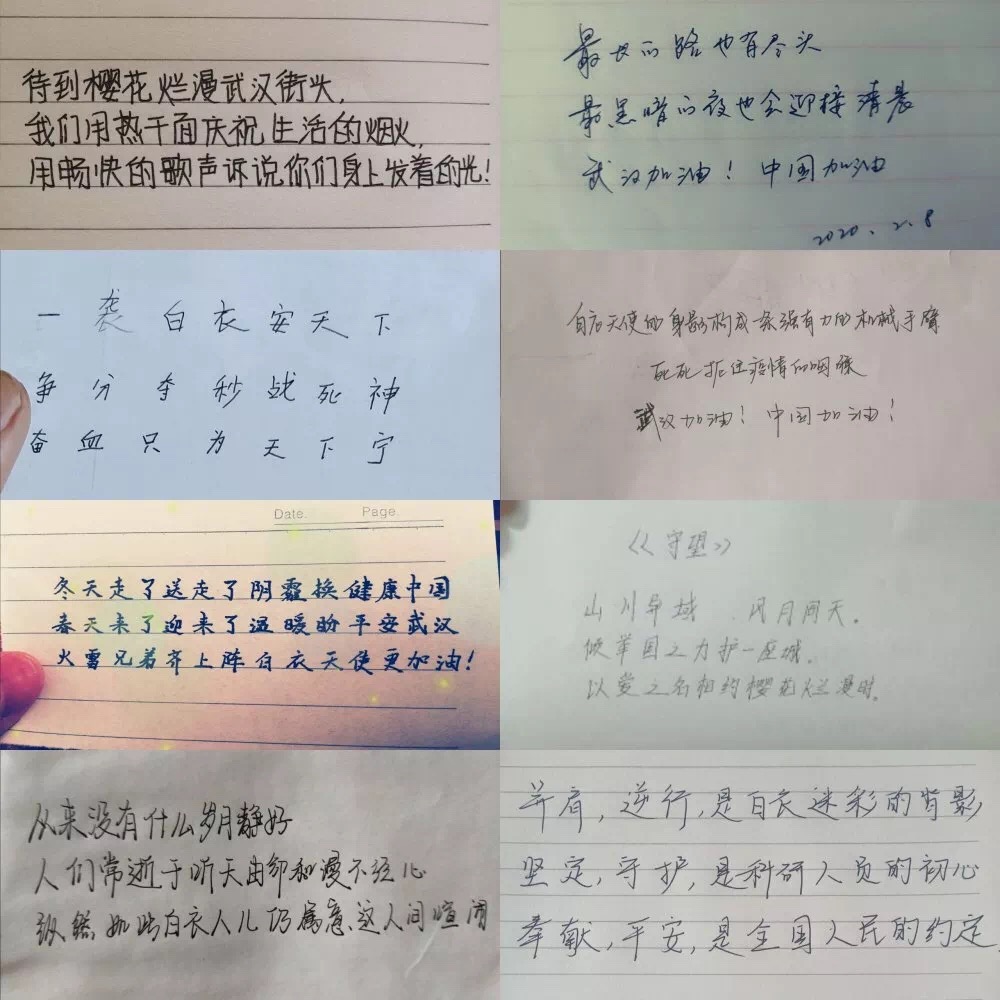 待到樱花烂漫武汉街头,
我们用热干面庆祝生活的烟火,
用畅快的歌声诉说你们身上发着的光!
最长的路也有尽头
最黑暗的夜也会迎接清晨
武汉加油! 中国加油
2020.2.8
一袭白衣安天下
争分夺秒战死神
奋血只为天下宁
白衣天使的身影构成一条强有力的机械手臂
死死扼住疫情的咽喉
武汉加油! 中国加油!
Date. Page
冬天走了送走了阴霾换健康中国
春天来了迎来了温暖盼平安武汉
火雷兄弟齐上阵白衣天使更加油!
《守望》
山川异域 风月同天。
倾举国之力护一座城。
以爱之名相约樱花烂漫时。
从来没有什么岁月静好
人们常逝于听天由命和漫不经心
纵然如此白衣人儿仍属意这人间喧闹
并肩,逆行,是白衣迷彩的背影
坚定,守护,是科研人员的初心
奉献,平安,是全国人民的约定